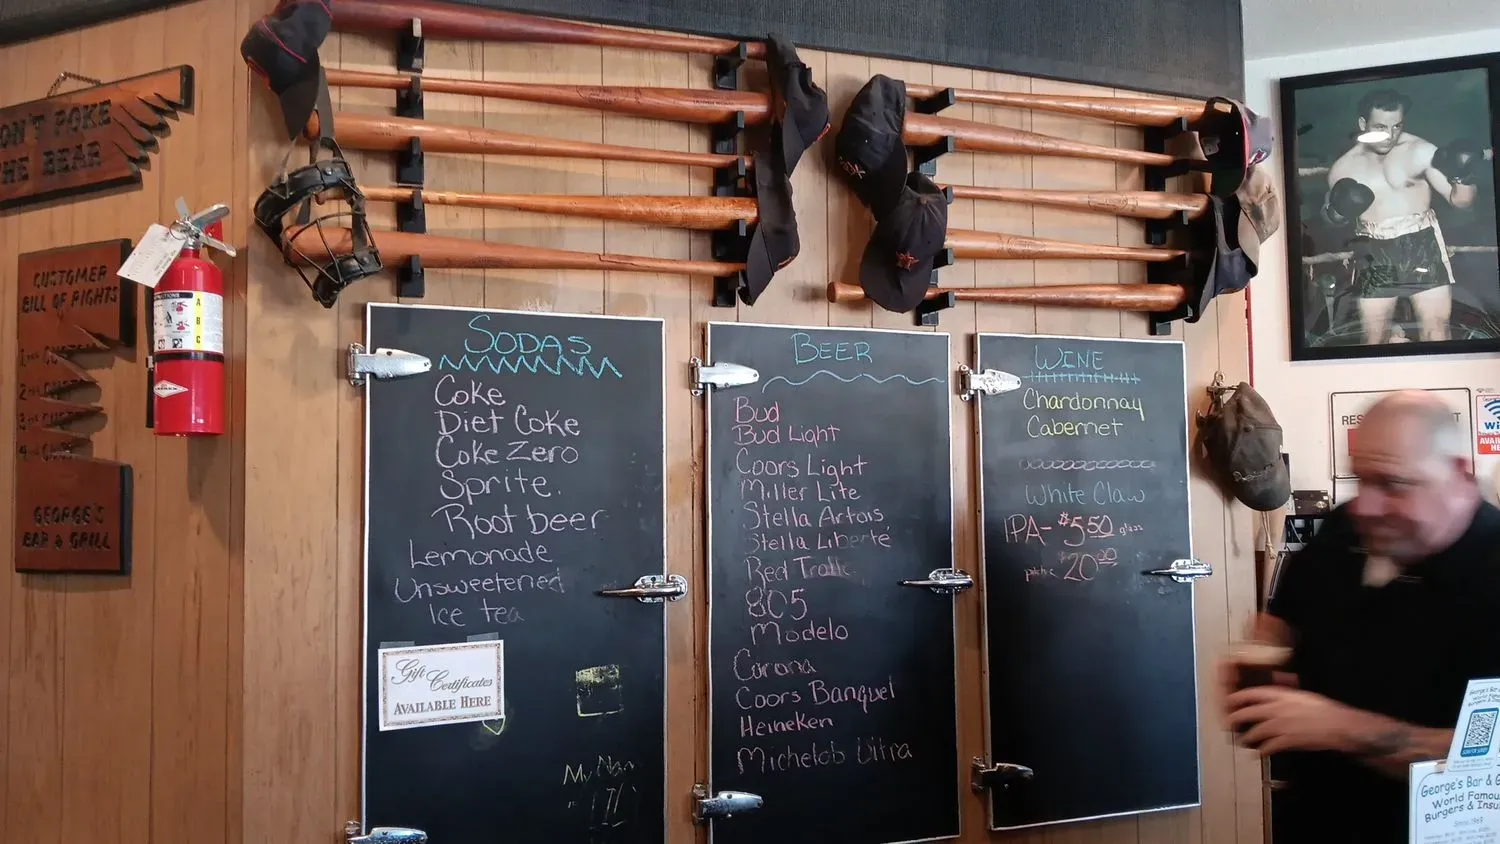 ON'T POKE
HE BEAR
CUSTOMER
BILL OF RIGHTS
GEORGE'S
BAR & GRILL
A
B
C
SODAS
Coke
Diet Coke
Coke Zero
Sprite.
Root beer
Lemonade
Unsweetened
Ice tea
Gift
Certificates
AVAILABLE HERE
BEER
Bud
Bud Light
Coors Light
Miller Lite
Stella Artois
Stella Liberté
Red
805
Modelo
Corona
Coors Banquel
Heineken
Michelob Ultra
WINE
Chardonnay
Cabernet
White Claw
IPA- $5.50 glass
$20.00
George's Bar & G
World Famou
Burgers & Insu
Since 1969